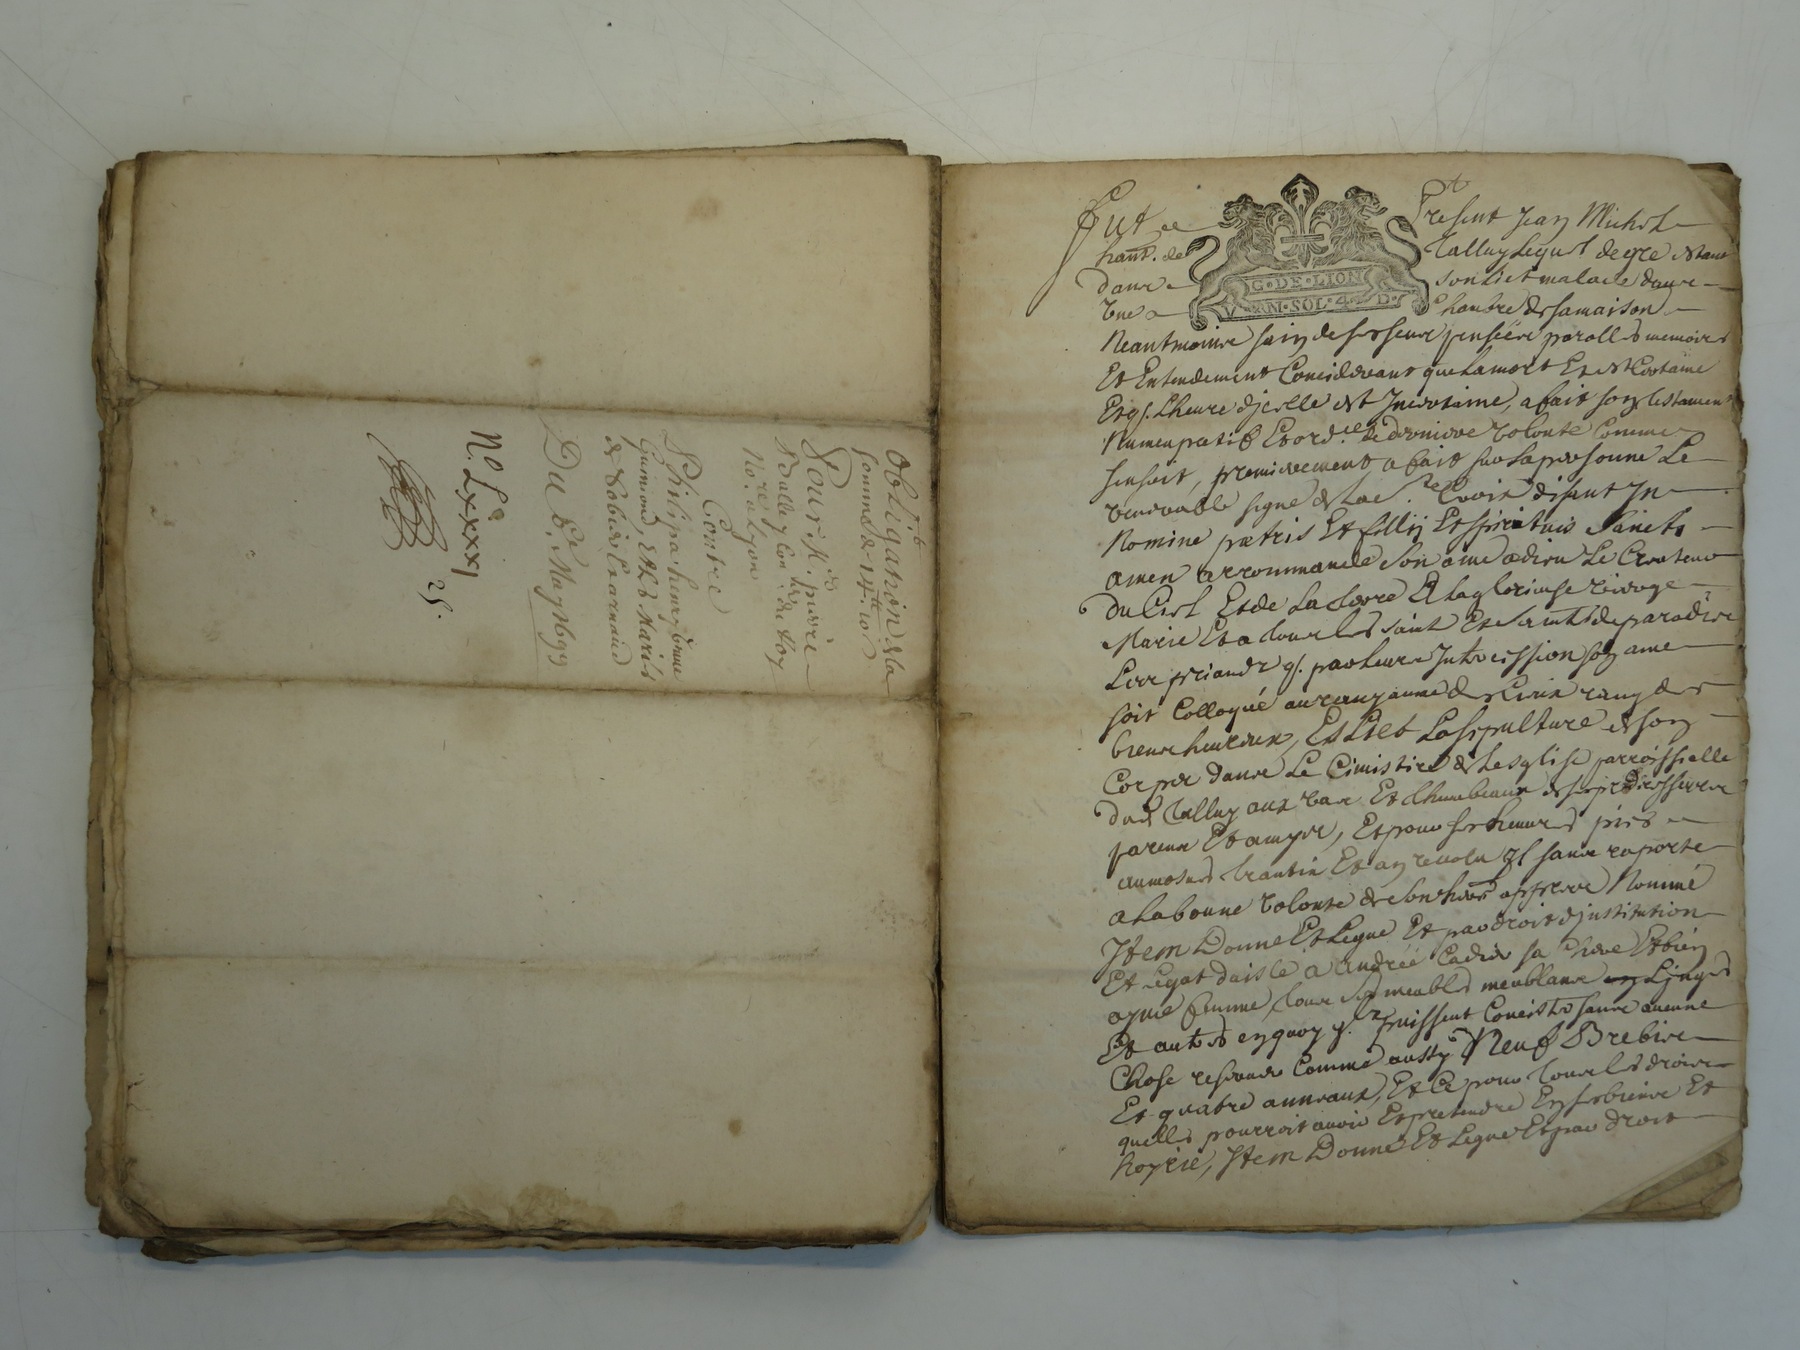 Obligation de la
somme de 14 ₶ 10 s
Pour Sr. Pierre
Dalley Con.er du Roy
No.re a Lyon
Contre
Philipa henry
Guimond, Et
Du 6.e May 1699
N.o Lxxxxi
25.
Fut ce Present Jean Michel
hant. de Talluy Lequel de gre estant
dans son lict malade dans
Une chambre de sa maison
G·DE·LION
SOL·4·D·
Neantmoins sain de ses sens pensées parolles memoires
Et Entendement Considerant que La mort Est Certaine
Et q. L'heure d'jcelle est Incertaine, a fait son testament
Nuncupatif Et ord.ce de derniere volonte Comme
sensuit, premierement a fait sur sa personne Le
venerable signe de la S.te Croix disant In
Nomine patris Et fillij Et spiritus Sancti
amen a recommande son ame a dieu Le Createur
Du Ciel Et de La terre A la glorieuse vierge
Marie Et a tous les saints Et saintes de paradis
Les priant q. par leurs Intercession son ame
soit Colloqué au royaume des Cieux rang des
bienheureux, Eslit La sepulture de son
Corps dans Le Cimistire de Lesglise parroissialle
dud. Talluy aux vas Et thumbeaux de ses predecesseurs
parens Et amys, Et pour ses heures pies
aumosnes trantin Et an revolu Il sans raporte
a La bonne volonte de son her. appres Nommé
Item Donne Et Legue Et par droit d'justitution
Et Legat delaisse a Andrée Cadier sa chere Et bien
aymé femme, tous ses meubles meublans Linges
Et autres en quoy q.lz puissent Consister sans aucune
Chose reserver Comme aussy Neuf Brebis
Et quatre anneaux, Et Ce pour tous les droits
quelles pourroit avoir Et pretendre En ses biens Et
hoyrie, Item Donne Et Legue Et par droit